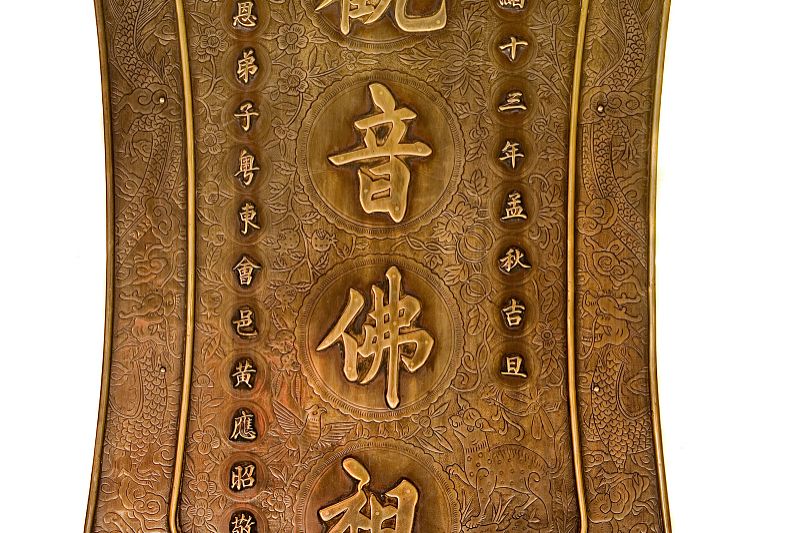 緒十三年孟秋吉旦
觀音佛祖
恩弟子粵東會邑黃應昭敬